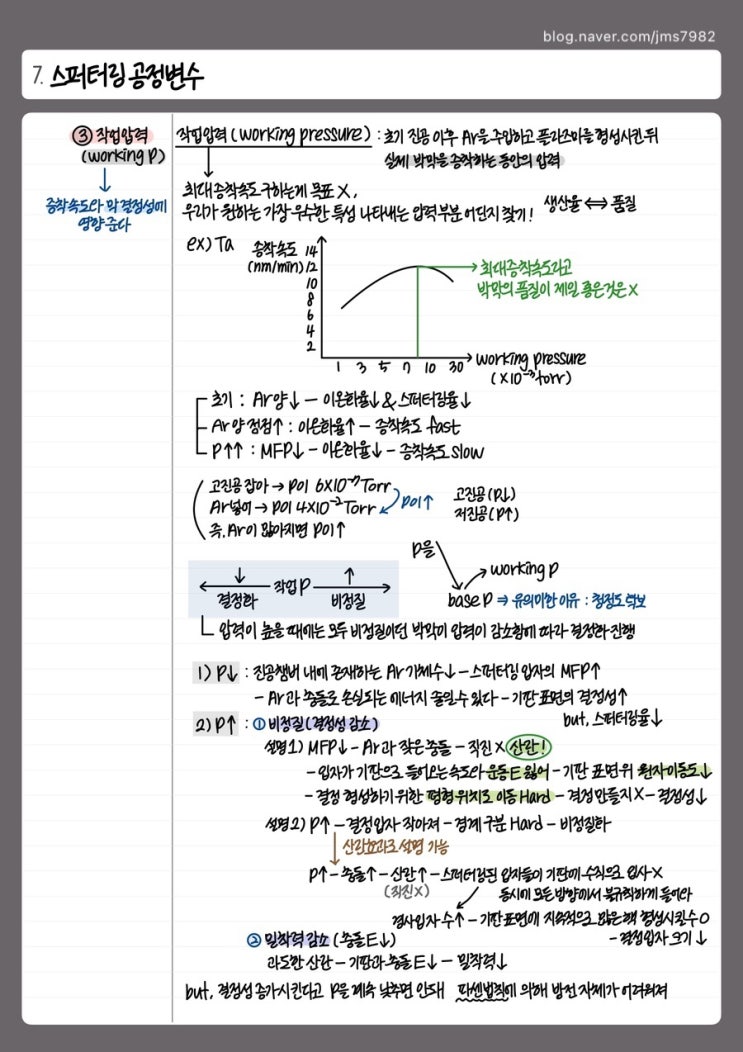 blog.naver.com/jms7982
7. 스퍼터링 공정변수
③ 작업압력
(working P)
증착속도와 막 결정성에
영향 준다
작업압력 (working pressure) : 초기 진공 이후 Ar을 주입하고 플라즈마를 형성시킨 뒤
실제 박막을 증착하는 동안의 압력
최대 증착속도 구하는게 목표 X,
우리가 원하는 가장 우수한 특성 나타내는 압력 부분 어딘지 찾기! 생산율 ⟺ 품질
ex) Ta
증착속도
(nm/min)
14
12
10
8
6
4
2
최대증착속도라고
박막의 품질이 제일 좋은것은 X
1 3 5 7 10 30
working pressure
(×10⁻³torr)
초기 : Ar양↓ – 이온화율↓ & 스퍼터링율↓
Ar양 점점↑ : 이온화율↑ – 증착속도 fast
P↑↑ : MFP↓ – 이온화율↓ – 증착속도 slow
고진공 잡아 → P이 6×10⁻⁷Torr
Ar넣어 → P이 4×10⁻²Torr
P이↑
즉, Ar이 많아지면 P이↑
고진공 (P↓)
저진공 (P↑)
P을
working P
base P ⇒ 유의미한 이유 : 청정도 확보
↓ 작업 P ↑
결정화 비정질
압력이 높을 때에는 모두 비정질이던 박막이 압력이 감소함에 따라 결정화 진행
1) P↓ : 진공챔버 내에 존재하는 Ar 기체수↓ – 스퍼터링 입자의 MFP↑
– Ar과 충돌로 손실되는 에너지 줄일 수 있다 – 기판 표면의 결정성↑
but, 스퍼터링율↓
2) P↑ : ① 비정질 (결정성 감소)
설명1) MFP↓ – Ar과 잦은 충돌 – 직진 X 산란!
– 입자가 기판으로 들어오는 속도와 운동E 잃어 – 기판 표면 위 원자이동도↓
– 결정 형성하기 위한 평형 위치로 이동 Hard – 결정 만들지 X – 결정성↓
설명2) P↑ – 결정입자 작아져 – 경계 구분 Hard – 비정질화
산란효과로 설명 가능
P↑ – 충돌↑ – 산란↑ – 스퍼터링된 입자들이 기판에 수직으로 입사 X
(직진X)
동시에 모든 방향에서 불규칙하게 들어와
경사입자 수↑ – 기판 표면에 지속적으로 많은 핵 형성시킬 수 O
– 결정입자 크기↓
② 밀착력 감소 (충돌E↓)
과도한 산란 – 기판과 충돌E↓ – 밀착력↓
but, 결정성 증가시킨다고 P을 계속 낮추면 안돼 파센법칙에 의해 방전 자체가 어려워져